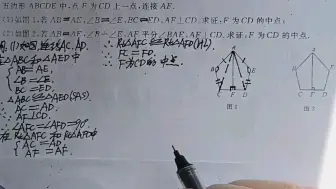 五边形ABCDE中,点F为CD上一点,连接AF.
(1)如图1,若AB=AE,∠B=∠E,BC=ED,AF⊥CD,求证:F为CD的中点;
(2)如图2,若AB=AE,∠B=∠E,AF平分∠BAE,AF⊥CD,求证:F为CD的中点.
(1)如图,连接AC,AD.
△ABC和△AED中
AB=AE,
∠B=∠E
BC=ED.
△ABC≌△AED(SAS)
AC=AD.
∵AF⊥CD.
∠AFC=∠AFD=90°.
在Rt△AFC和Rt△AFD中
AC=AD
AF=AF.
∴Rt△AFC≌Rt△AFD(HL).
∴FC=FD.
∴F为CD的中点.
A
B
E
C
F
D
图1
A
B
E
C
F
D